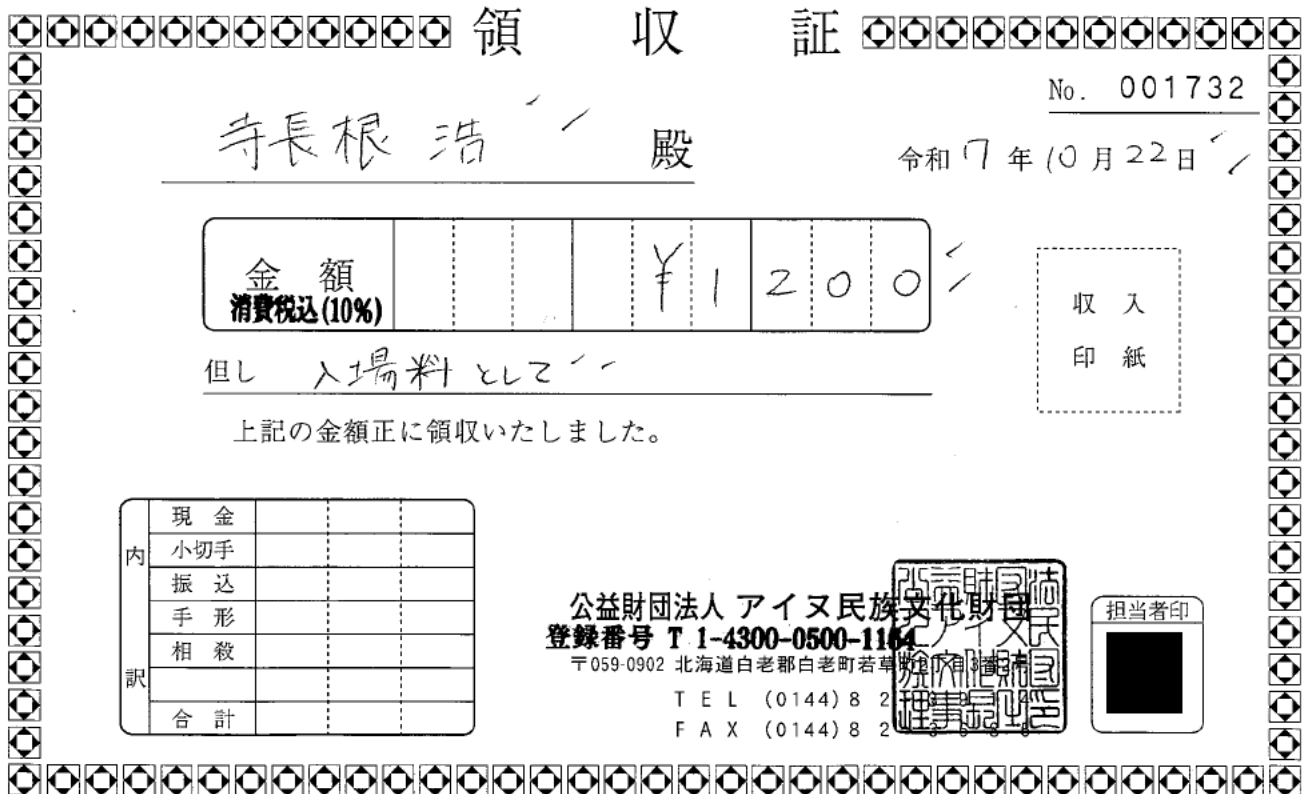 領収証
No. 001732
寺長根 浩 殿
令和 7 年 10 月 22 日
金額 ¥1200
消費税込(10%)
但し 入場料として
上記の金額正に領収いたしました。
内訳
現金
小切手
振込
手形
相殺
合計
収入
印紙
公益財団法人 アイヌ民族文化財団
登録番号 T 1-4300-0500-1164
〒059-0902 北海道白老郡白老町若草町2丁目3番
TEL (0144)82
FAX (0144)82
担当者印